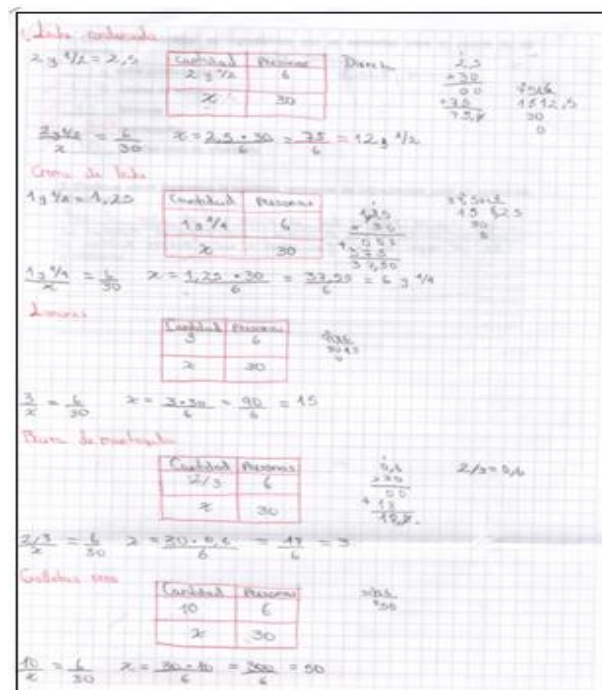 Leche condensada
2 y 1/2 = 2,5
Cantidad Personas
2 y 1/2 6
x 30
Directa
2,5
× 30
00
+ 75
75,0
75 6
15 12,5
30
0
2 y 1/2 / x = 6/30 x = 2,5 • 30 / 6 = 75/6 = 12 y 1/2
Crema de leche
1 y 1/4 = 1,25
Cantidad Personas
1 y 1/4 6
x 30
1,25
× 30
000
+ 375
37,50
37,5 6
15 6,25
30
0
1 y 1/4 / x = 6/30 x = 1,25 • 30 / 6 = 37,50/6 = 6 y 1/4
Limones
Cantidad Personas
3 6
x 30
3/x = 6/30 x = 3 • 30 / 6 = 90/6 = 15
Barra de mantequilla
Cantidad Personas
2/3 6
x 30
0,6
× 30
00
+ 18
18,0
2/3 = 0,6
2/3 / x = 6/30 x = 30 • 0,6 / 6 = 18/6 = 3
Galletas
Cantidad Personas
10 6
x 30
10/x = 6/30 x = 30 • 10 / 6 = 300/6 = 50